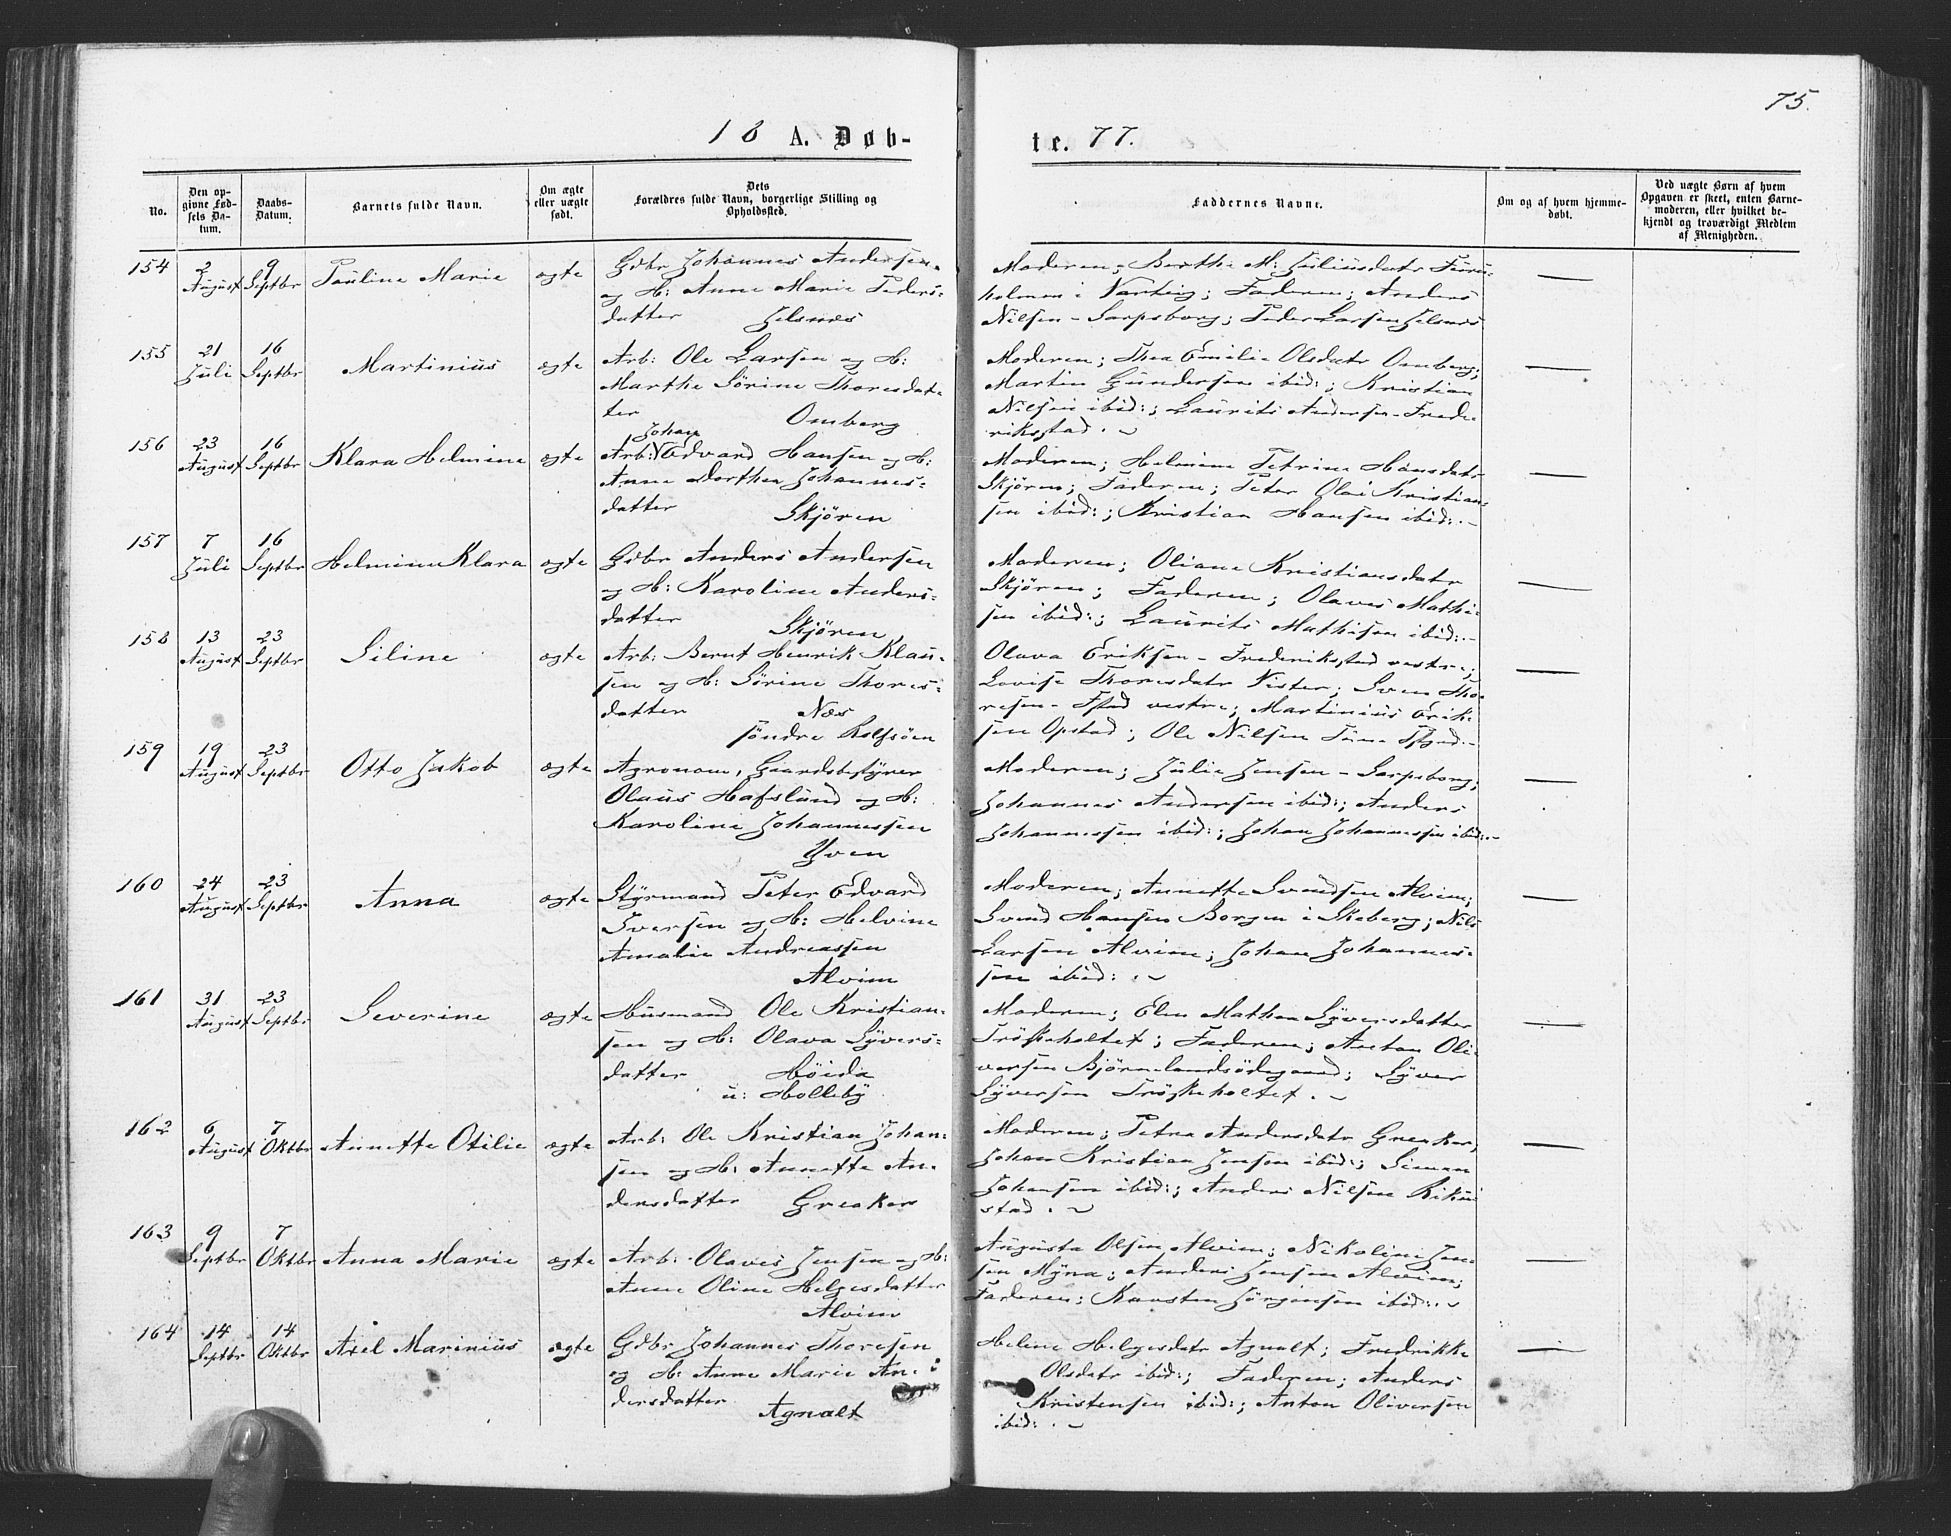 75.
18 A. Døb-
te. 77.
No.
Den opgivne Fødsels Datum.
Daabs-Datum.
Barnets fulde Navn.
Om ægte eller uægte født.
Dets Forældres fulde Navn, borgerlige Stilling og Opholdssted.
Faddernes Navne.
Om og af hvem hjemmedøbt.
Ved uægte Børn af hvem Opgaven er skeet, enten Barnemoderen, eller hvilket bekjendt og troværdigt Medlem af Menigheden.
154 2 August 9 Septbr Pauline Marie ægte Gdbr Johannes Andersen
og H: Anne Marie Peders-
datter Jelsnes
Moderen; Berthe M: Juliusdatr Furu-
holmen i Varteig; Faderen; Anders
Nilsen - Sarpsborg; Peder Larsen Jelsnes
155 21 Juli 16 Septbr Martinius ægte Arb: Ole Larsen og H:
Marthe Sørine Thoresdat-
ter Omberg
Moderen; Thea Emilie Olsdatr Omberg;
Martin Gundersen ibid:; Kristian
Nilsen ibid:; Laurits Andersen - Frede-
rikstad.
156 23 August 16 Septbr Klara Helmine ægte Johan
Arb: Edvard Hansen og H:
Anne Dorthea Johannes-
datter Skjøren
Moderen; Helmine Petrine Hansdatr
Skjøren; Faderen; Peter Olai Kristian-
sen ibid:; Kristian Hansen ibid:.
157 7 Juli 16 Septbr Helmine Klara ægte Gdbr Anders Andersen
og H: Karoline Anders-
datter Skjøren
Moderen; Oliane Kristiansdatr
Skjøren; Faderen; Olaves Mathi-
sen ibid:; Laurits Mathisen ibid:.
158 13 August 23 Septbr Siline ægte Arb: Bernt Henrik Klau-
sen og H: Sørine Thores-
datter Næs
søndre Rolfsøen
Olava Eriksen - Frederikstad vestre;
Lovise Thoresdatr Vister; Sven Tho-
resen - Fstad vestre; Martinius Erik-
sen Opstad; Ole Nilsen Tune
159 19 August 23 Septbr Otto Jakob ægte Agronom, Gaardsbestyrer
Olaus Hafslund og H:
Karoline Johannessen
Yven
Moderen; Julie Jensen - Sarpsborg;
Johannes Andersen ibid:; Anders
Johannessen ibid:; Johan Johannessen ibid:.
160 24 August 23 Septbr Anna ægte Styrmand Peter Edvard
Iversen og H: Helvine
Amalie Andreassen
Alvim
Moderen; Annette Svendsen Alvim;
Svend Hansen Borgen i Skeberg; Nils
Larsen Alvim; Johan Johannes-
sen ibid:.
161 31 August 23 Septbr Severine ægte Husmand Ole Kristian-
sen og H: Olava Syvers-
datter Høida
u: Holleby
Moderen; Elen Mathea Syversdatter
Trøskeholtet; Faderen; Anton Oli-
versen Bjørnelandsødegaard; Syver
Syversen Trøskeholtet.
162 6 August 7 Oktbr Annette Otilie ægte Arb: Ole Kristian Johan-
sen og H: Annette An-
dersdatter Greaker
Moderen; Petra Andersdatr Greaker;
Johan Kristian Jensen ibid:; Simen
Johansen ibid:; Anders Nilsen
stad.
163 9 Septbr 7 Oktbr Anna Marie ægte Arb: Olaves Jensen og H:
Anne Oline Helgesdatter
Alvim
Augusta Olsen Alvim; Nikoline Jen-
sen Myra; Anders Jensen Alvim;
Faderen; Karsten Jørgensen ibid:.
164 14 Septbr 14 Oktbr Axel Marinius ægte Gdbr Johannes Thoresen
og H: Anne Marie An-
dersdatter
Agnalt
Helene Helgesdatr Agnalt; Fredrikke
Olsdatr ibid:; Faderen; Anders
Kristensen ibid:; Anton Oliversen
ibid:.